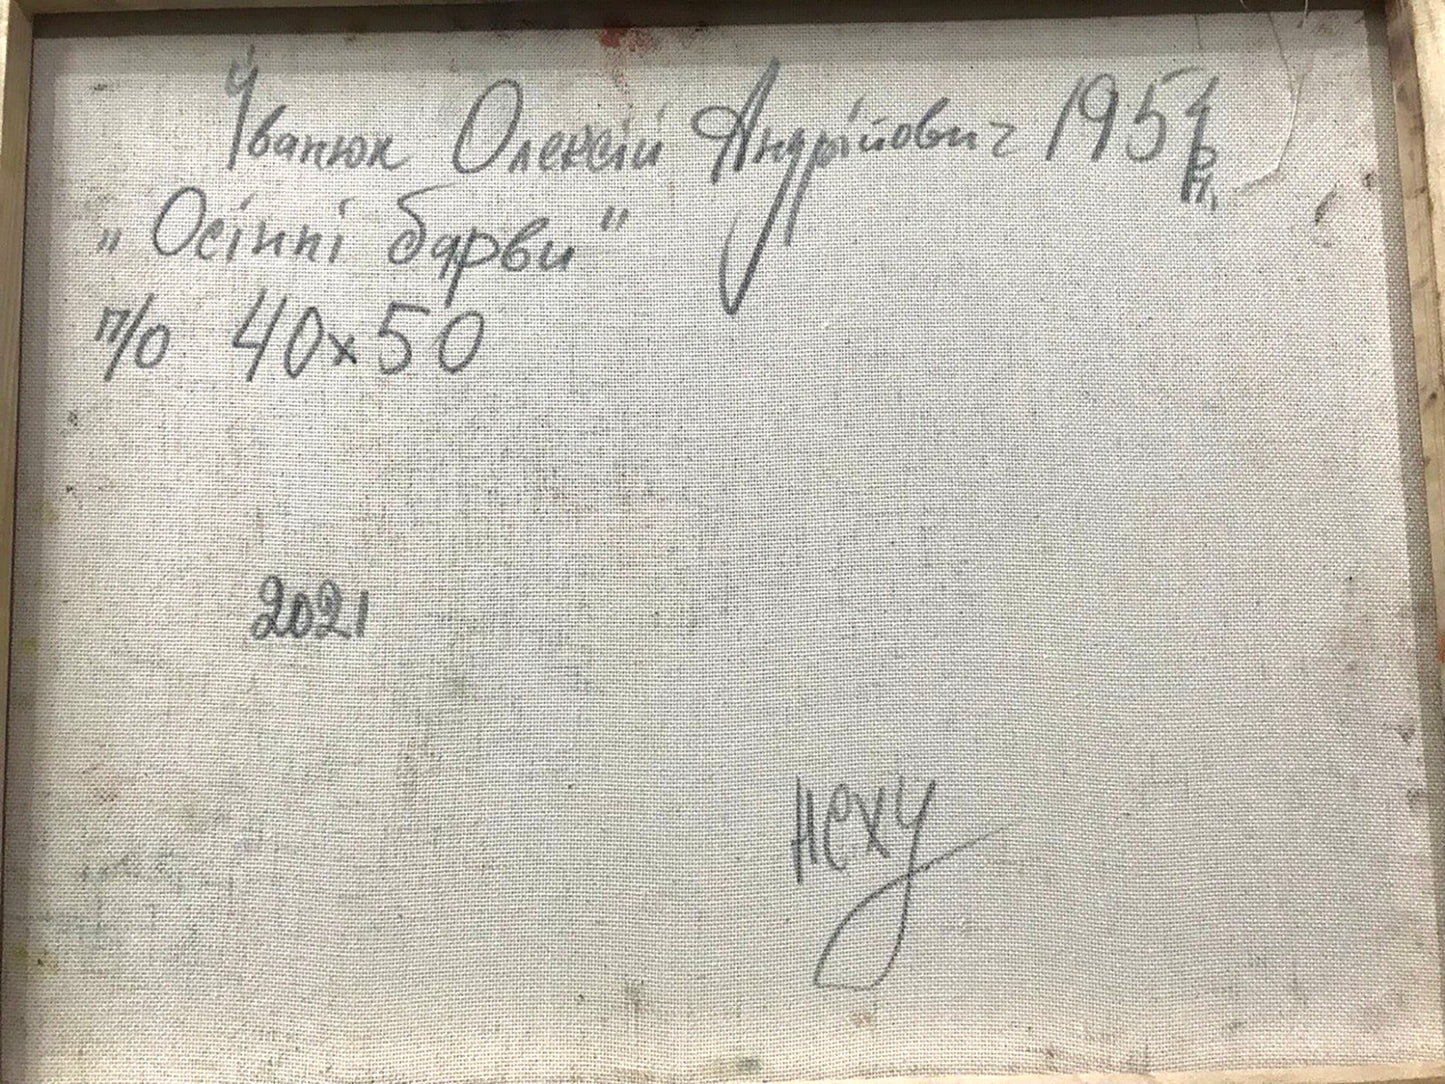 Іванюк Олексій Андрійович 1954 р.н.
„Осінні барви"
п/о 40х50
2021
НСХУ